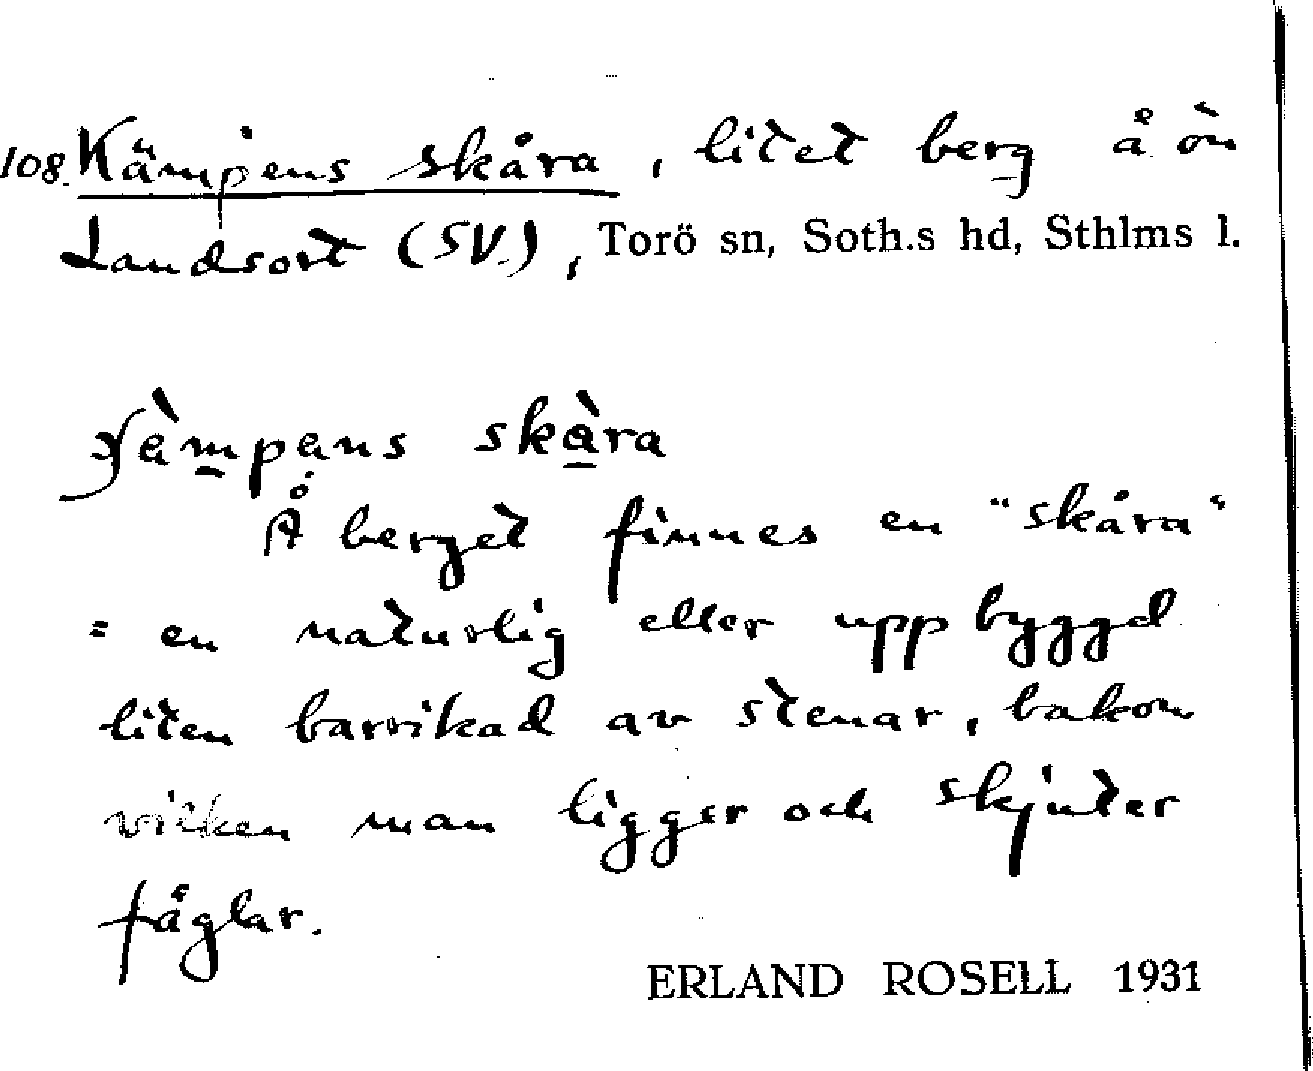 108. Kämpens skåra, litet berg å ön
Landsort (SV.), Torö sn, Soth.s hd, Sthlms l.
skàra
Å berget finnes en "skåra"
= en naturlig eller uppbyggd
liten barrikad av stenar, bakom
vilken man ligger och skjuter
fåglar.
ERLAND ROSELL 1931